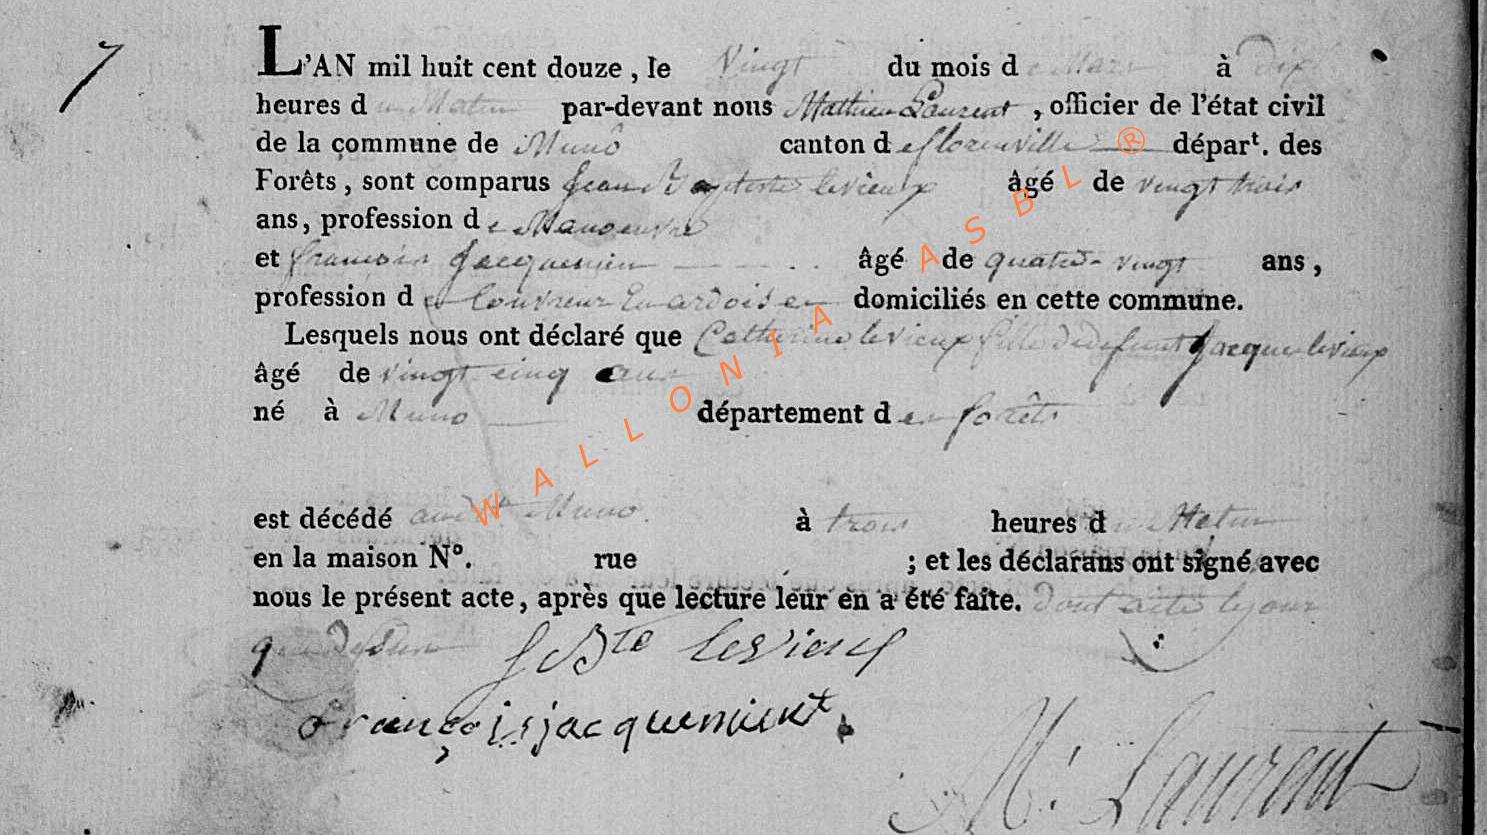 7
L'AN mil huit cent douze, le Vingt du mois de Mars à dix
heures du Matin par-devant nous Mathieu Laurent, officier de l'état civil
de la commune de Muno canton de florenville départ. des
Forêts, sont comparus Jean Baptiste levieux âgé de vingt trois
ans, profession de Manoeuvre
et françois Jacquemin âgé de quatre-vingt ans,
profession de Couvreur En ardoises domiciliés en cette commune.
Lesquels nous ont déclaré que Catherine levieux fille de defunt Jacque levieux
âgé de vingt cinq ans
né à Muno département des forêts
est décédé Muno à trois heures du Matin
en la maison N°. rue ; et les déclarans ont signé avec
nous le présent acte, après que lecture leur en a été faite. dont acte le jour
que dessus JBte levieux
françois jacquemient.
M. Laurent
WALLONIA ASBL ®